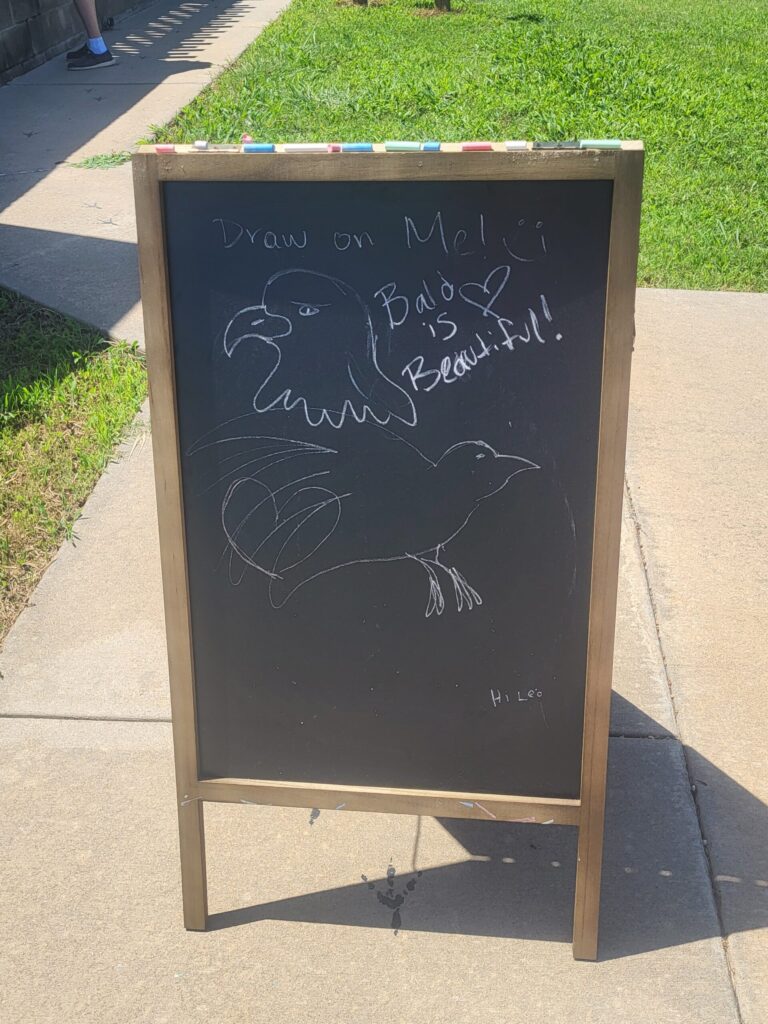 Draw on Me! :)
Bald
is
Beautiful!
Hi Leo